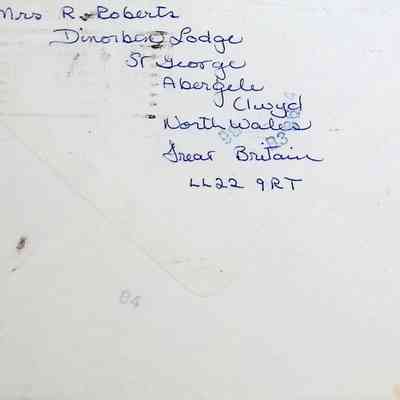 Mrs R. Roberts
Dinorben Lodge
St George
Abergele
Clwyd
North Wales
Great Britain
LL22 9RT
04